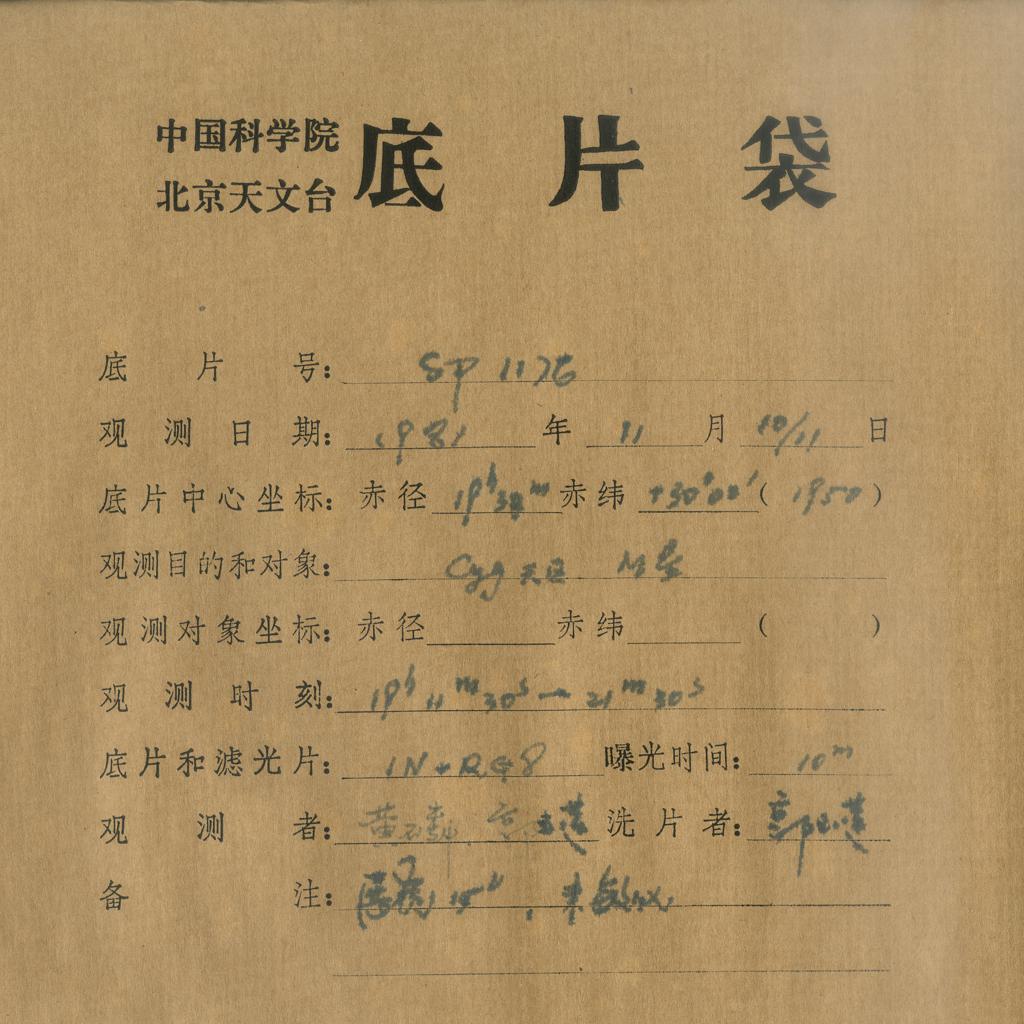 中国科学院
北京天文台
底片袋
底片号: SP 1176
观测日期: 1981 年 11 月 10/11 日
底片中心坐标: 赤径 19h 38m 赤纬 +30°00' ( 1950 )
观测目的和对象: Cyg 天区 M星
观测对象坐标: 赤径 赤纬 ( )
观测时刻: 19h 11m 30s — 21m 30s
底片和滤光片: IN + RG8 曝光时间: 10m
观测者: 黄 洗片者: 郭
备注: 15h , 未敏化